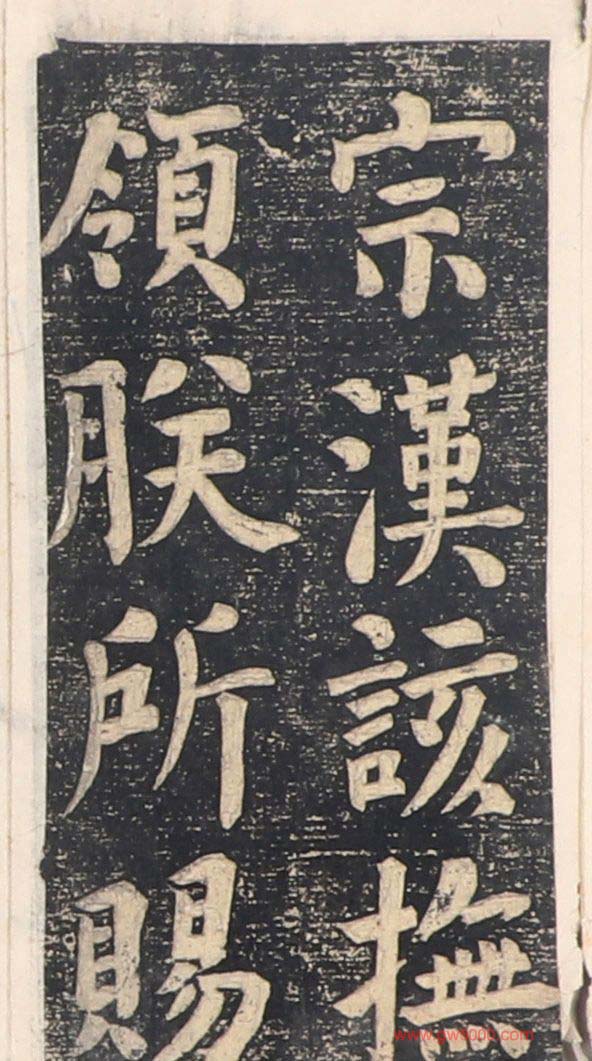 宗漢該撫
領朕所賜
www.gw8000.com